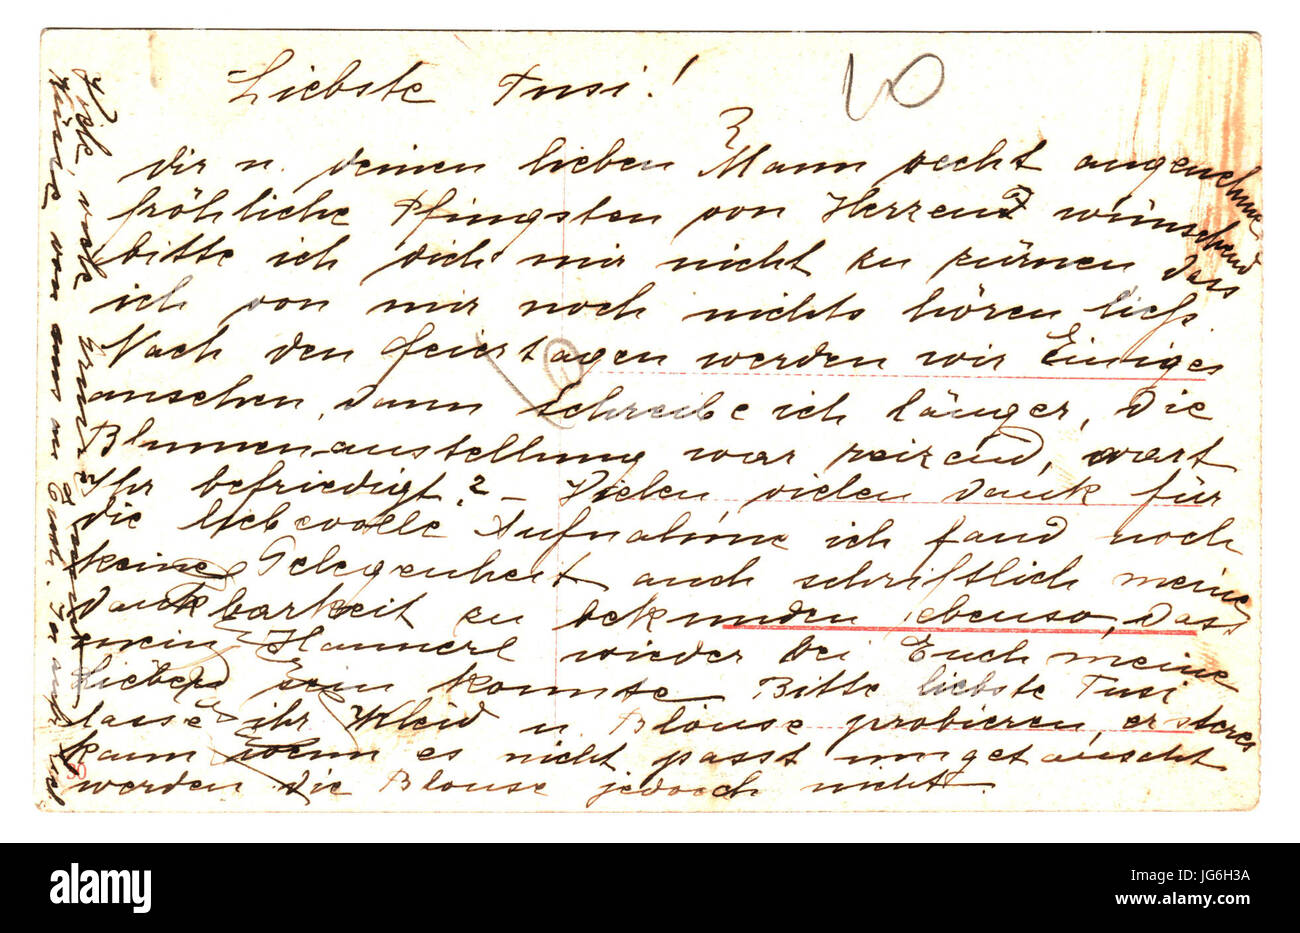 Liebste Tusi!
10
dir u. deinen lieben Mann recht angenehme
fröhliche Pfingsten von Herzen wünschend
bitte ich dich mir nicht zu zürnen dass
ich von mir noch nichts hören ließ.
Nach den Feiertagen werden wir Einiges
ansehen, dann schreibe ich länger, die
Blumenausstellung war reizend, wart
Ihr befriedigt? – Vielen vielen Dank für
die liebevolle Aufnahme ich fand noch
keine Gelegenheit auch schriftlich meine
Dankbarkeit zu bekunden, ebenso, dass
mein Hannerl wieder bei Euch meine
Lieben sein konnte. Bitte liebste Tusi
lasse ihr Kleid u. Blouse probieren, ersteres
kann wenn es nicht passt umgetauscht
werden die Blouse jedoch nicht.
Küsse von uns u.
30
alamy stock photo
a
alamy
JG6H3A
www.alamy.com